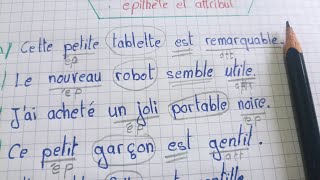 épithète et attribut
Cette petite tablette est remarquable.
ép att
Le nouveau robot semble utile.
ép att
J'ai acheté un joli portable noire.
ép ép
Ce petit garçon est gentil.
ép att
est